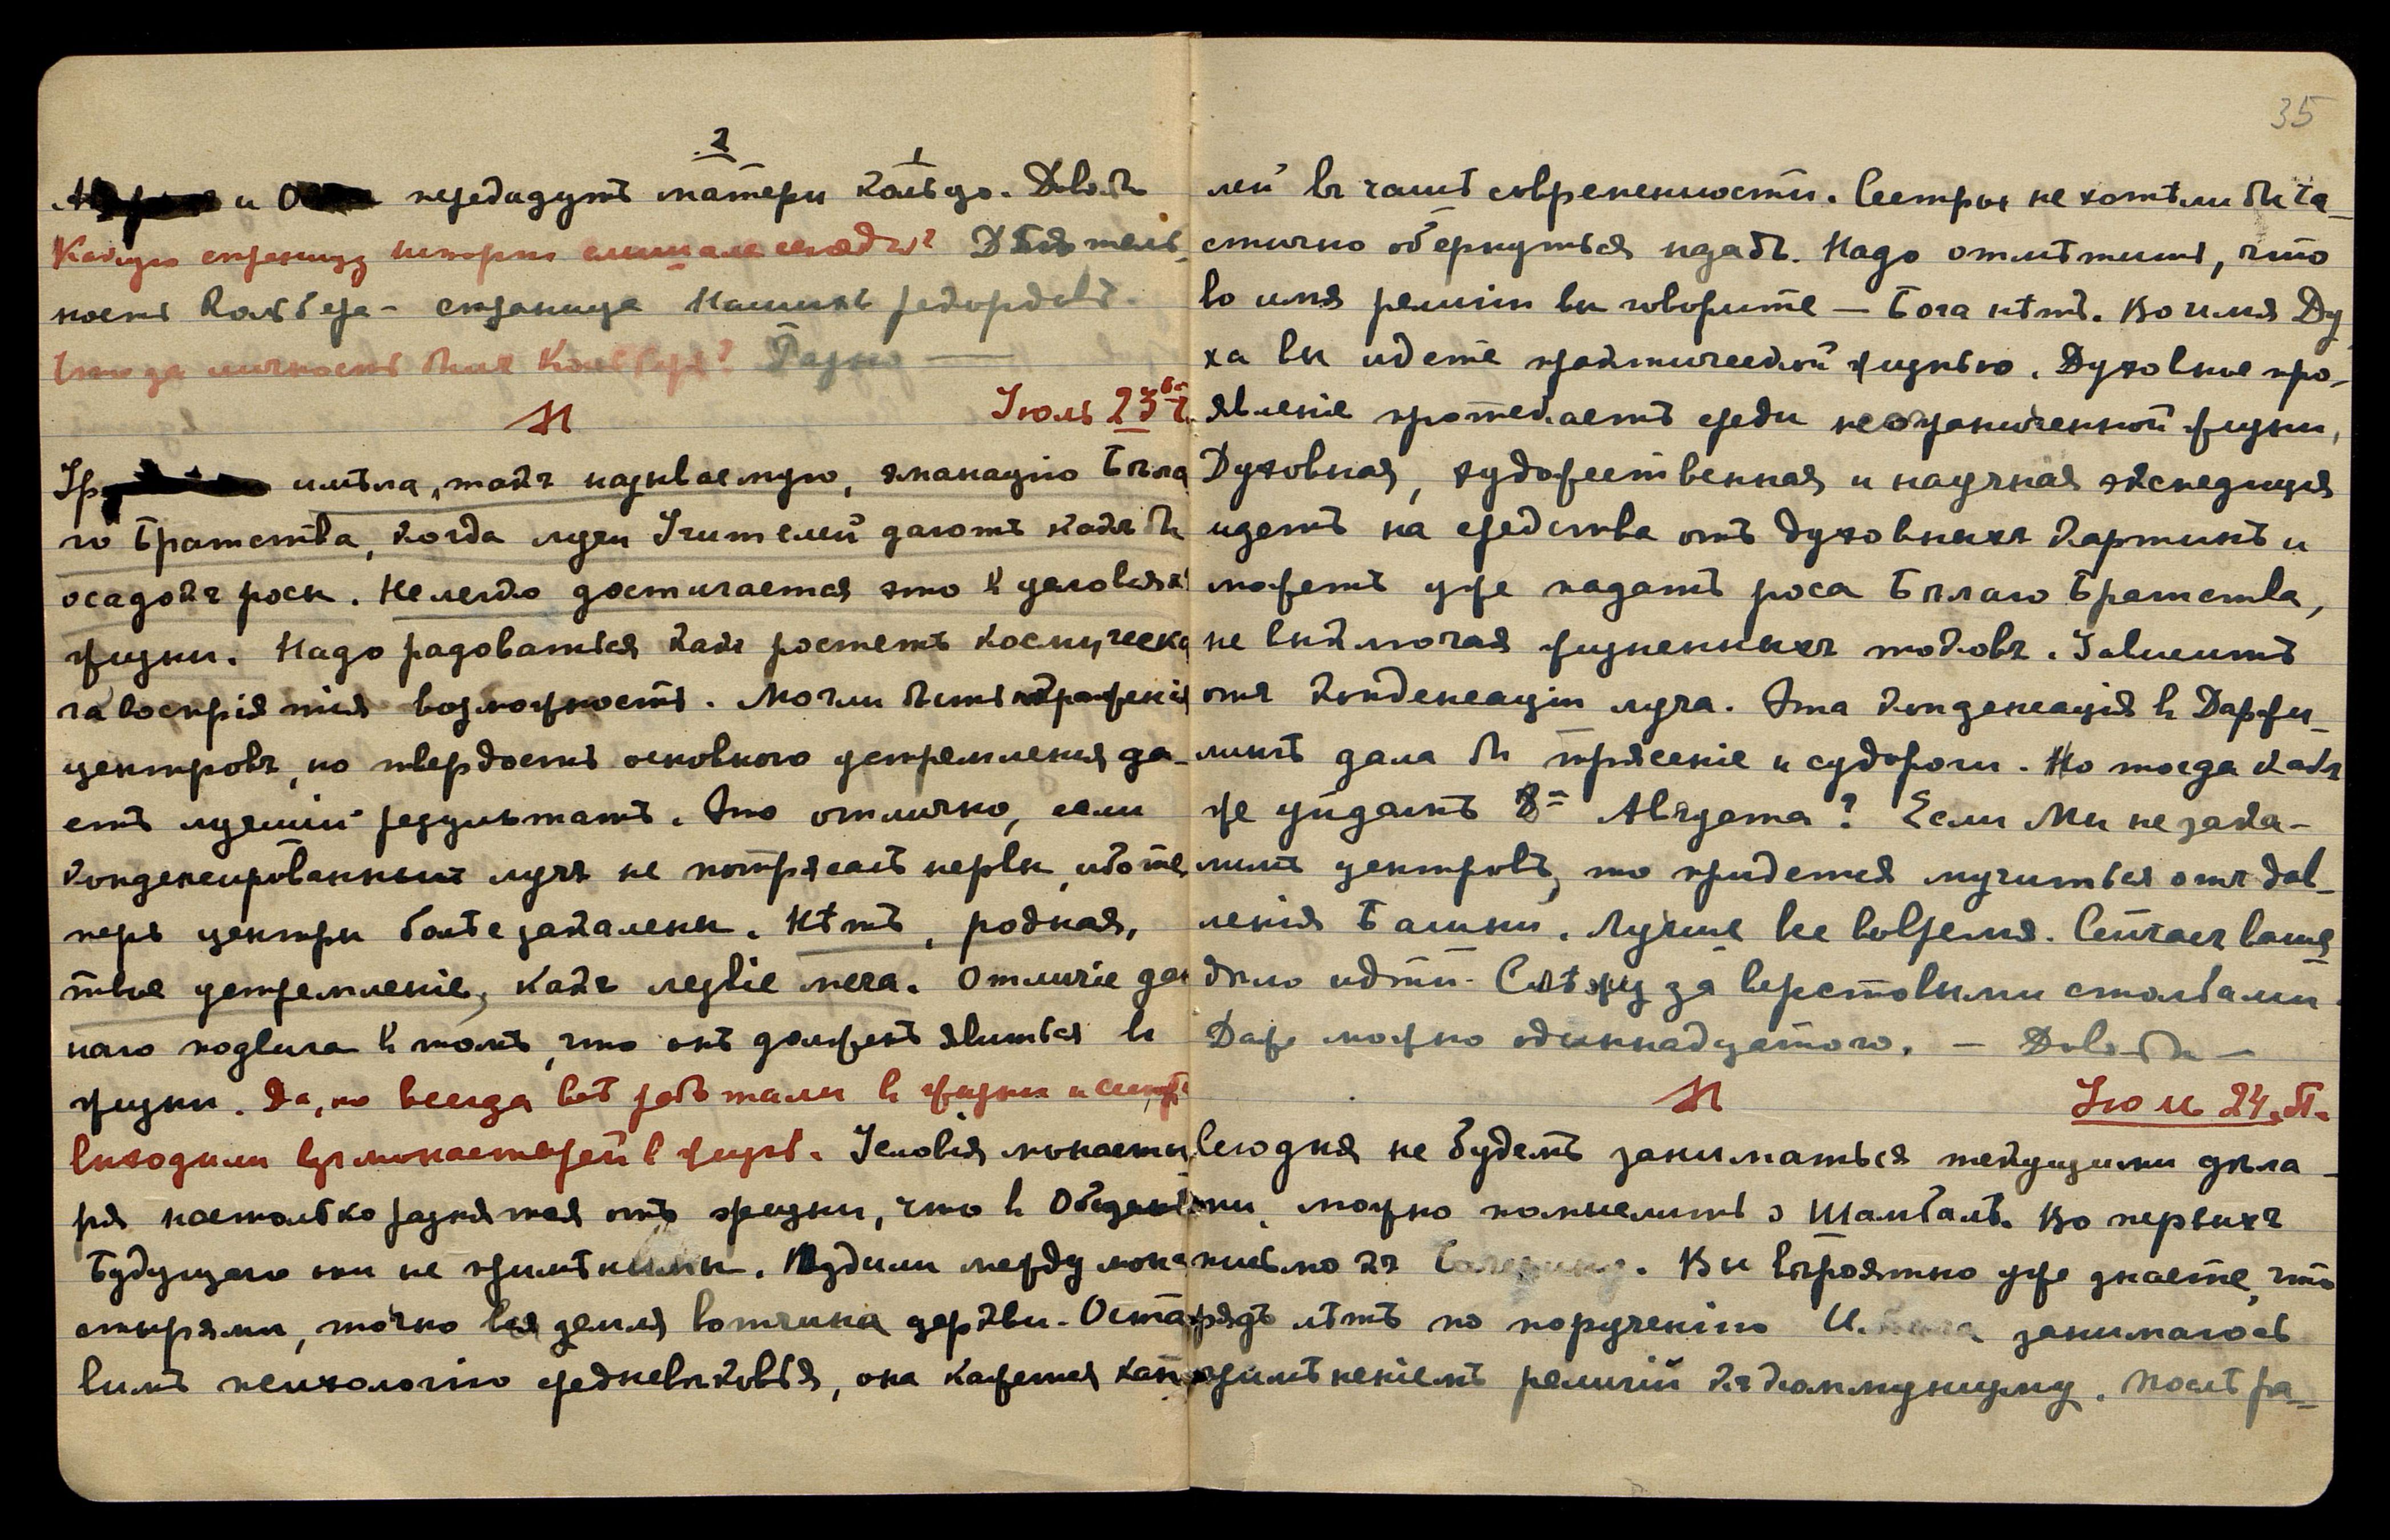 и О передадутъ матери кольцо. Довольно
Какую страницу истории слышала сегодня? Дѣятель-
ность Кольбера – страница Нашихъ рекордовъ.
что за личность былъ Кольберъ? Разно —
Іюль 23
Ур имѣла, такъ называемую, эманацію Бѣла
го Братства, когда лучи Учителей даютъ какъ бы
осадокъ росы. Нелегко достигается это в условіяхъ
жизни. Надо радоваться какъ ростетъ космическа
га воспріятія возможность. Могли быть пораженія
центровъ, но твердость основного устремленія да-
етъ лучшій результатъ. Это отлично, если
конденсированный лучъ не потрясаетъ нервы, ибо те
перь центры болѣе закалены. Нѣтъ, родная,
твое устремленіе, какъ лезвіе меча. Отличіе дан
наго подвига в томъ, что онъ долженъ явиться в
жизни. Да, но всегда всѣ работали в жизни и
выходили изъ монастырей в жизнь. Условія монасты
ря настолько разнятся отъ жизни, что в Общинѣ
Будущаго они не примѣнимы. Ходили между мона
стырями, точно вся земля вотчина церкви. Оста
вимъ психологію средневѣковья, она кажется кап
35
лей въ чашѣ современности. Сестры не хотѣли бы ча-
стично обернуться назадъ. Надо отмѣтить, что
во имя религіи вы говорите — Бога нѣтъ. Во имя Ду
ха вы идете практической жизнью. Духовное про-
явленіе протекаетъ среди неограниченной жизни,
Духовная, художественная и научная экспедиція
идетъ на средства отъ духовныхъ картинъ и
можетъ уже падать роса Бѣлаго Братства,
не выключая жизненныхъ токовъ. Зависитъ
отъ конденсаціи луча. Эта конденсація в Даржи-
лингѣ дала бы трясеніе и судороги. Но тогда какъ
же уйдемъ 8= Августа? Если Мы не зака-
лимъ центровъ, то придется мучиться отъ дав-
ленія Башни. Лучше все вовремя. Сейчасъ ваше
дѣло идти. Слѣжу за верстовыми столбами.
Даже можно одиннадцатого. — Довольно —
Іюль 24.
Сегодня не будемъ заниматься текущими дѣла-
ми, можно помыслить о Шамбалѣ. Во первыхъ
письмо къ Чичерину. Вы вѣроятно уже знаете, что
рядъ лѣтъ по порученію И. занимаюсь
примѣненіемъ религій къ коммунизму. Послѣ ра-